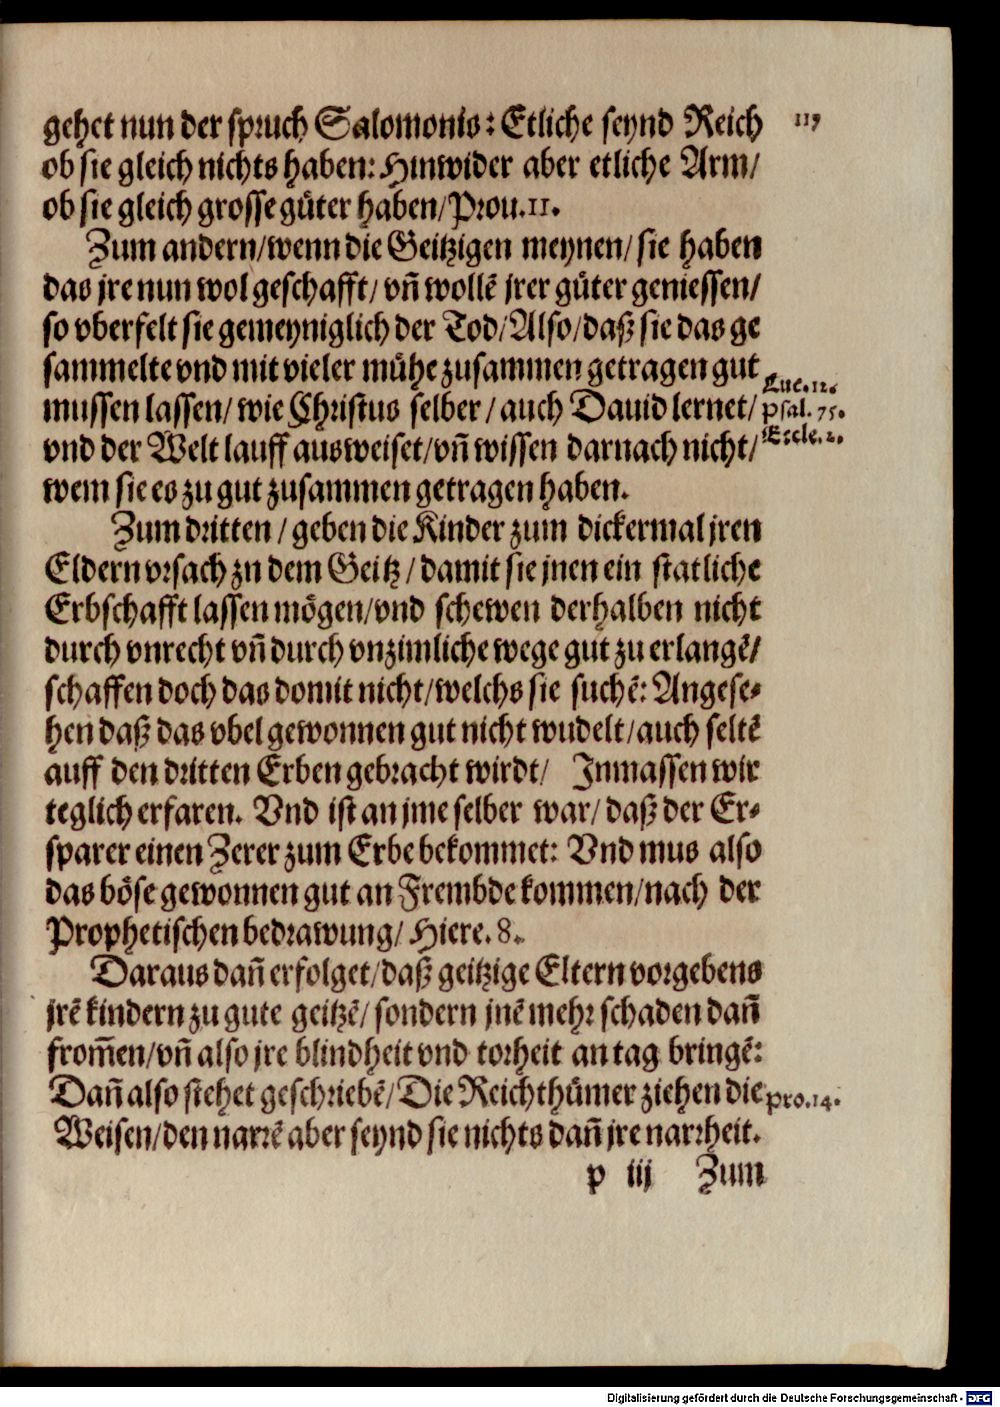 gehet nun der spruch Salomonis: Etliche seynd Reich 117
ob sie gleich nichts haben: Hinwider aber etliche Arm/
ob sie gleich grosse gůter haben/Prou.11.
Zum andern/wenn die Geitzigen meynen/sie haben
das jre nun wol geschafft/ vñ wollẽ jrer gůter geniessen/
so vberfelt sie gemeyniglich der Tod/Also/daß sie das ge
sammelte vnd mit vieler můhe zusammen getragen gut
mussen lassen/ wie Christus selber/auch Dauid lernet/
Luc.12.
psal.75.
Eccle.2.
vnd der Welt lauff ausweiset/vñ wissen darnach nicht/
wem sie es zu gut zusammen getragen haben.
Zum dritten/geben die Kinder zum dickermal jren
Eldern vrsach zu dem Geitz/damit sie jnen ein statliche
Erbschafft lassen mögen/vnd schewen derhalben nicht
durch vnrecht vñ durch vnzimliche wege gut zu erlangẽ/
schaffen doch das domit nicht/welchs sie suchẽ: Angese-
hen daß das vbel gewonnen gut nicht wudelt/auch seltẽ
auff den dritten Erben gebracht wirdt/ Inmassen wir
teglich erfaren. Vnd ist an jme selber war/daß der Er-
sparer einen Zerer zum Erbe bekommet: Vnd mus also
das böse gewonnen gut an Frembde kommen/nach der
Prophetischen bedrawung/ Hiere.8.
Daraus dañ erfolget/daß geitzige Eltern vorgebens
jrẽ kindern zu gute geitzẽ/sondern jnẽ mehr schaden dañ
from̃en/vñ also jre blindheit vnd torheit an tag bringẽ:
Dañ also stehet geschriebẽ/Die Reichthůmer ziehen die pro.14.
Weisen/den narrẽ aber seynd sie nichts dañ jre narrheit.
p iij Zum
Digitalisierung gefördert durch die Deutsche Forschungsgemeinschaft - DFG